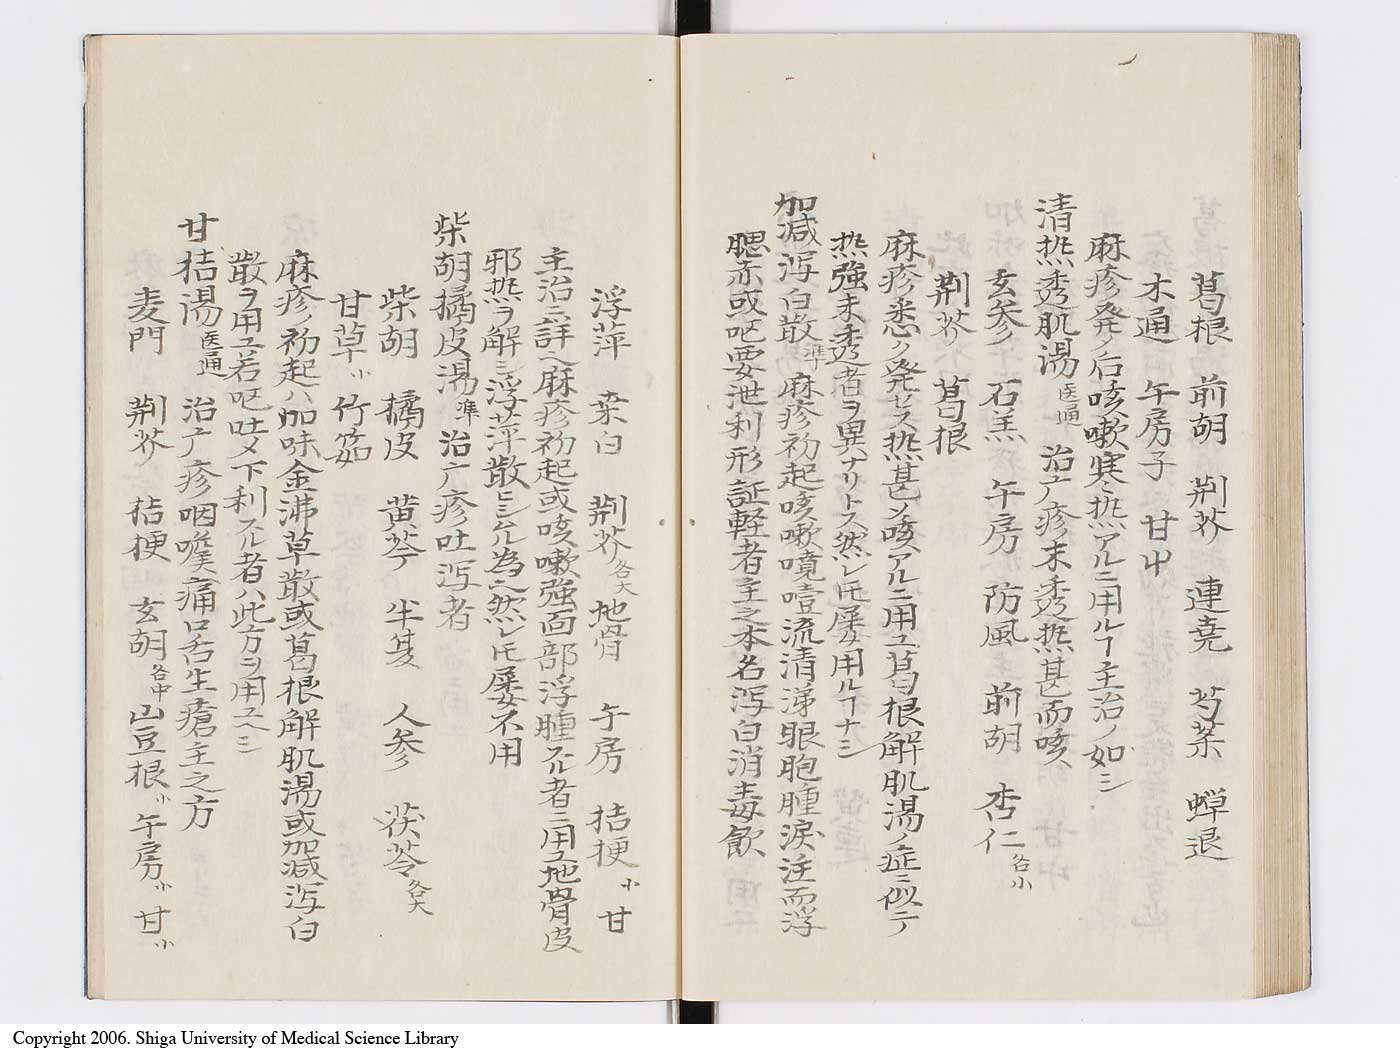 葛根 前胡 荊芥 連堯 芍薬 蝉退
木通 午房子 甘中
麻疹発ノ后咳嗽寒熱アルニ用ルヿ主治ノ如シ
清熱透肌湯 医通 治广疹末透熱甚而咳
玄参 石羔 午房 防風 前胡 杏仁 各小
荊芥 葛根
麻疹悉ク発セス熱甚ク咳アルニ用ユ葛根解肌湯ノ症ニ似テ
熱強未透者ヲ異ナリトス然レ𪜈屡用ルヿナシ
加減瀉白散 準 麻疹初起咳嗽噴嚏流清涕眼胞腫涙注而浮
腮赤或呕要泄利形証軽者主之本名瀉白消毒飲
浮萍 桒白 荊芥 各大 地骨 午房 桔梗 小 甘
主治ニ詳也麻疹初起或咳嗽強面部浮腫スル者ニ用ユ地骨皮
邪熱ヲ解シ浮萍散
柴胡橘皮湯 準 治广疹吐瀉者
柴胡 橘皮 黄芩 半夏 人参 茯苓 各大
甘草 小 竹筎
麻疹ノ初起ハ加味金沸草散或葛根解肌湯或加減瀉白
散ヲ用ユ若呕吐メ下利スル者ハ此方ヲ用ユヘシ
甘桔湯 医通 治广疹咽喉痛口舌生瘡主之方
麦門 荊芥 桔梗 玄胡 各中 山豆根 小 午房 小 甘 小
Copyright 2006. Shiga University of Medical Science Library